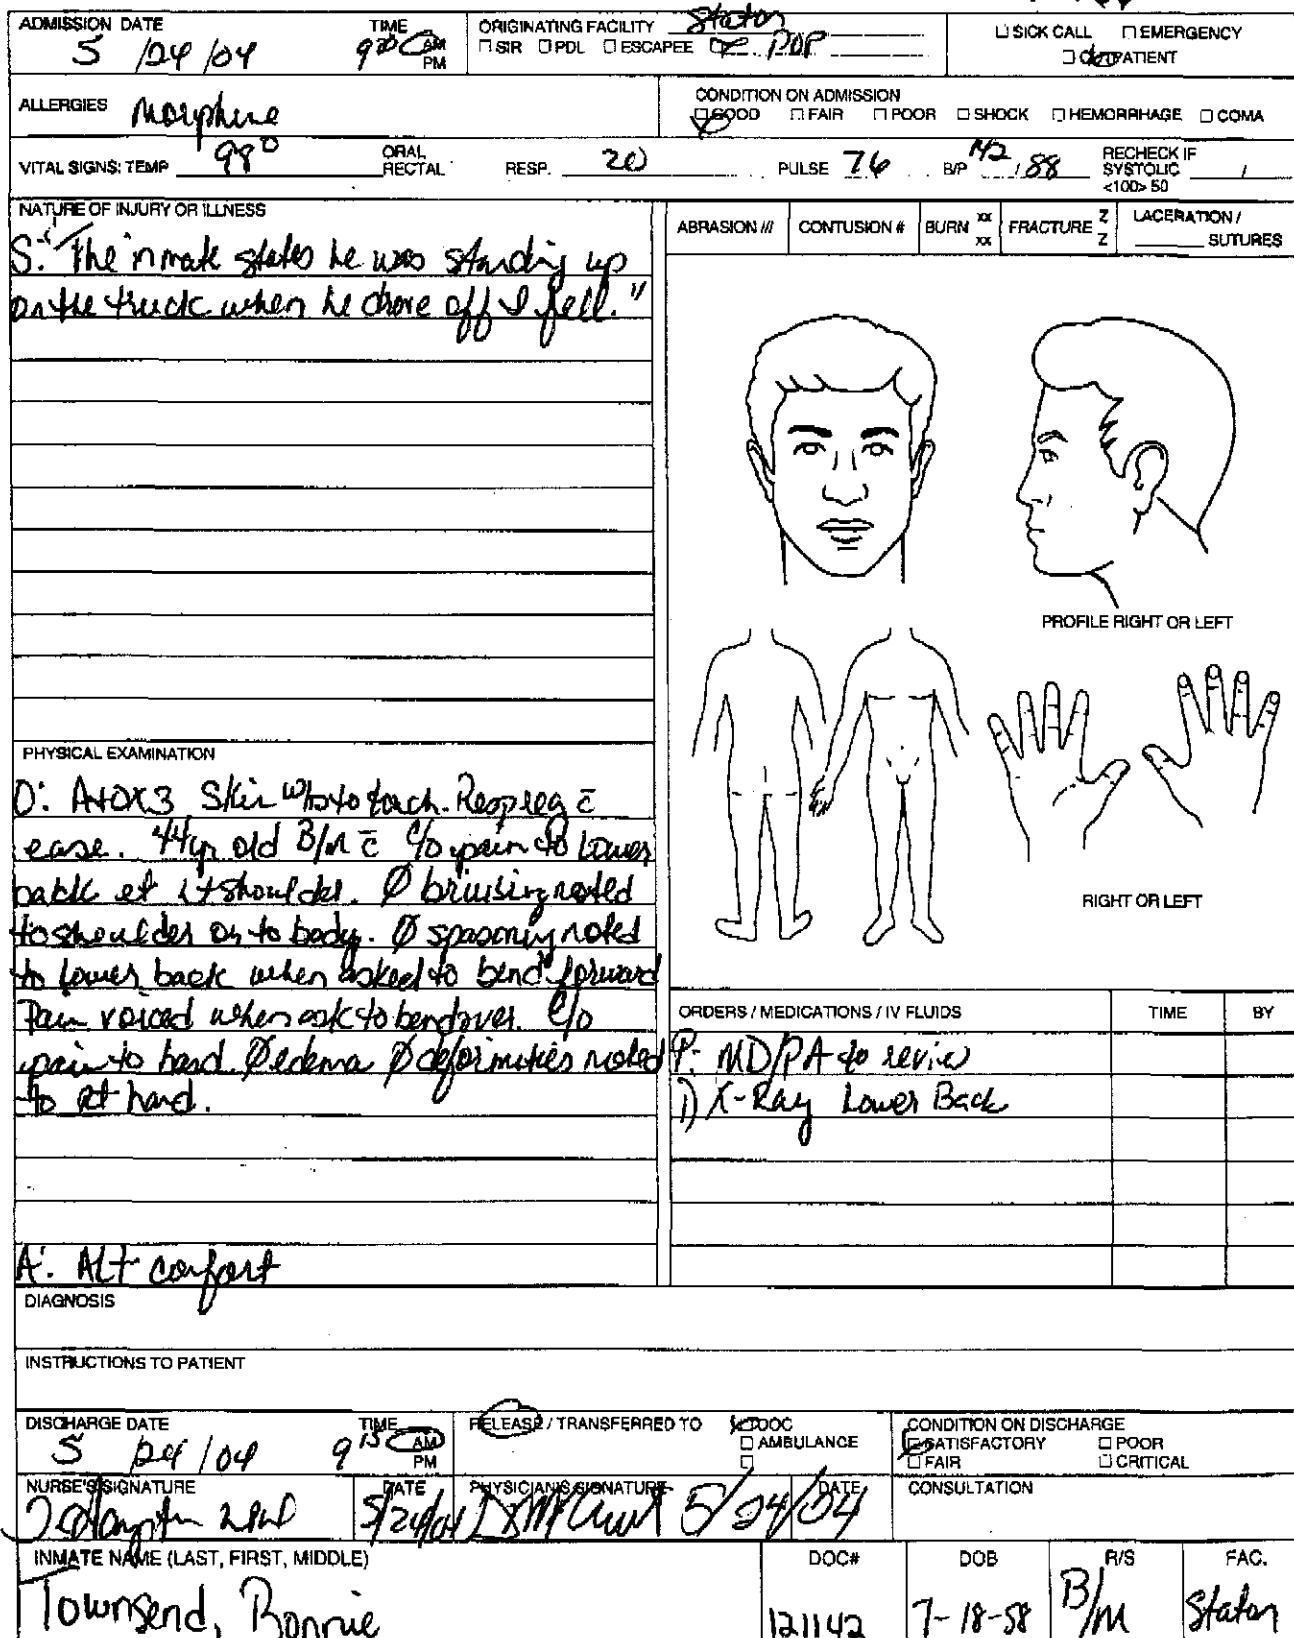 ADMISSION DATE 5 /24/04 TIME AM PM ORIGINATING FACILITY Staton
□ SIR □ PDL □ ESCAPEE □ POP
□ SICK CALL □ EMERGENCY
□ OUTPATIENT
ALLERGIES Morphine
CONDITION ON ADMISSION
□ GOOD □ FAIR □ POOR □ SHOCK □ HEMORRHAGE □ COMA
VITAL SIGNS: TEMP 98° ORAL RECTAL RESP. 20 PULSE 76 B/P 142 / 88 RECHECK IF SYSTOLIC <100> 50 /
NATURE OF INJURY OR ILLNESS
S: "The inmate states he was standing up
on the truck when he drove off I fell."
ABRASION /// CONTUSION # BURN xx xx FRACTURE Z Z LACERATION / SUTURES
PROFILE RIGHT OR LEFT
RIGHT OR LEFT
PHYSICAL EXAMINATION
O: A+OX3 Skin to touch. Resp reg c̄
ease. 44yr old B/M c̄ c/o pain to lower
back et shoulder. Ø bruising noted
to shoulder or to body. Ø spasming noted
to lower back when asked to bend forward
Pain voiced when ask to bend over. C/o
pain to hand. Ø edema Ø deformities noted
to Rt hand.
A: Alt comfort
ORDERS / MEDICATIONS / IV FLUIDS TIME BY
P: MD/PA to review
1) X-Ray Lower Back
DIAGNOSIS
INSTRUCTIONS TO PATIENT
DISCHARGE DATE 5 /24/04 TIME 9 15 AM PM
RELEASE / TRANSFERRED TO □ DOC
□ AMBULANCE
□
CONDITION ON DISCHARGE
□ SATISFACTORY □ POOR
□ FAIR □ CRITICAL
NURSE'S SIGNATURE DATE 5/24/04 PHYSICIAN'S SIGNATURE DATE 5/24/04 CONSULTATION
INMATE NAME (LAST, FIRST, MIDDLE) DOC# DOB R/S FAC.
Townsend, Ronnie 121142 7-18-58 B/M Staton